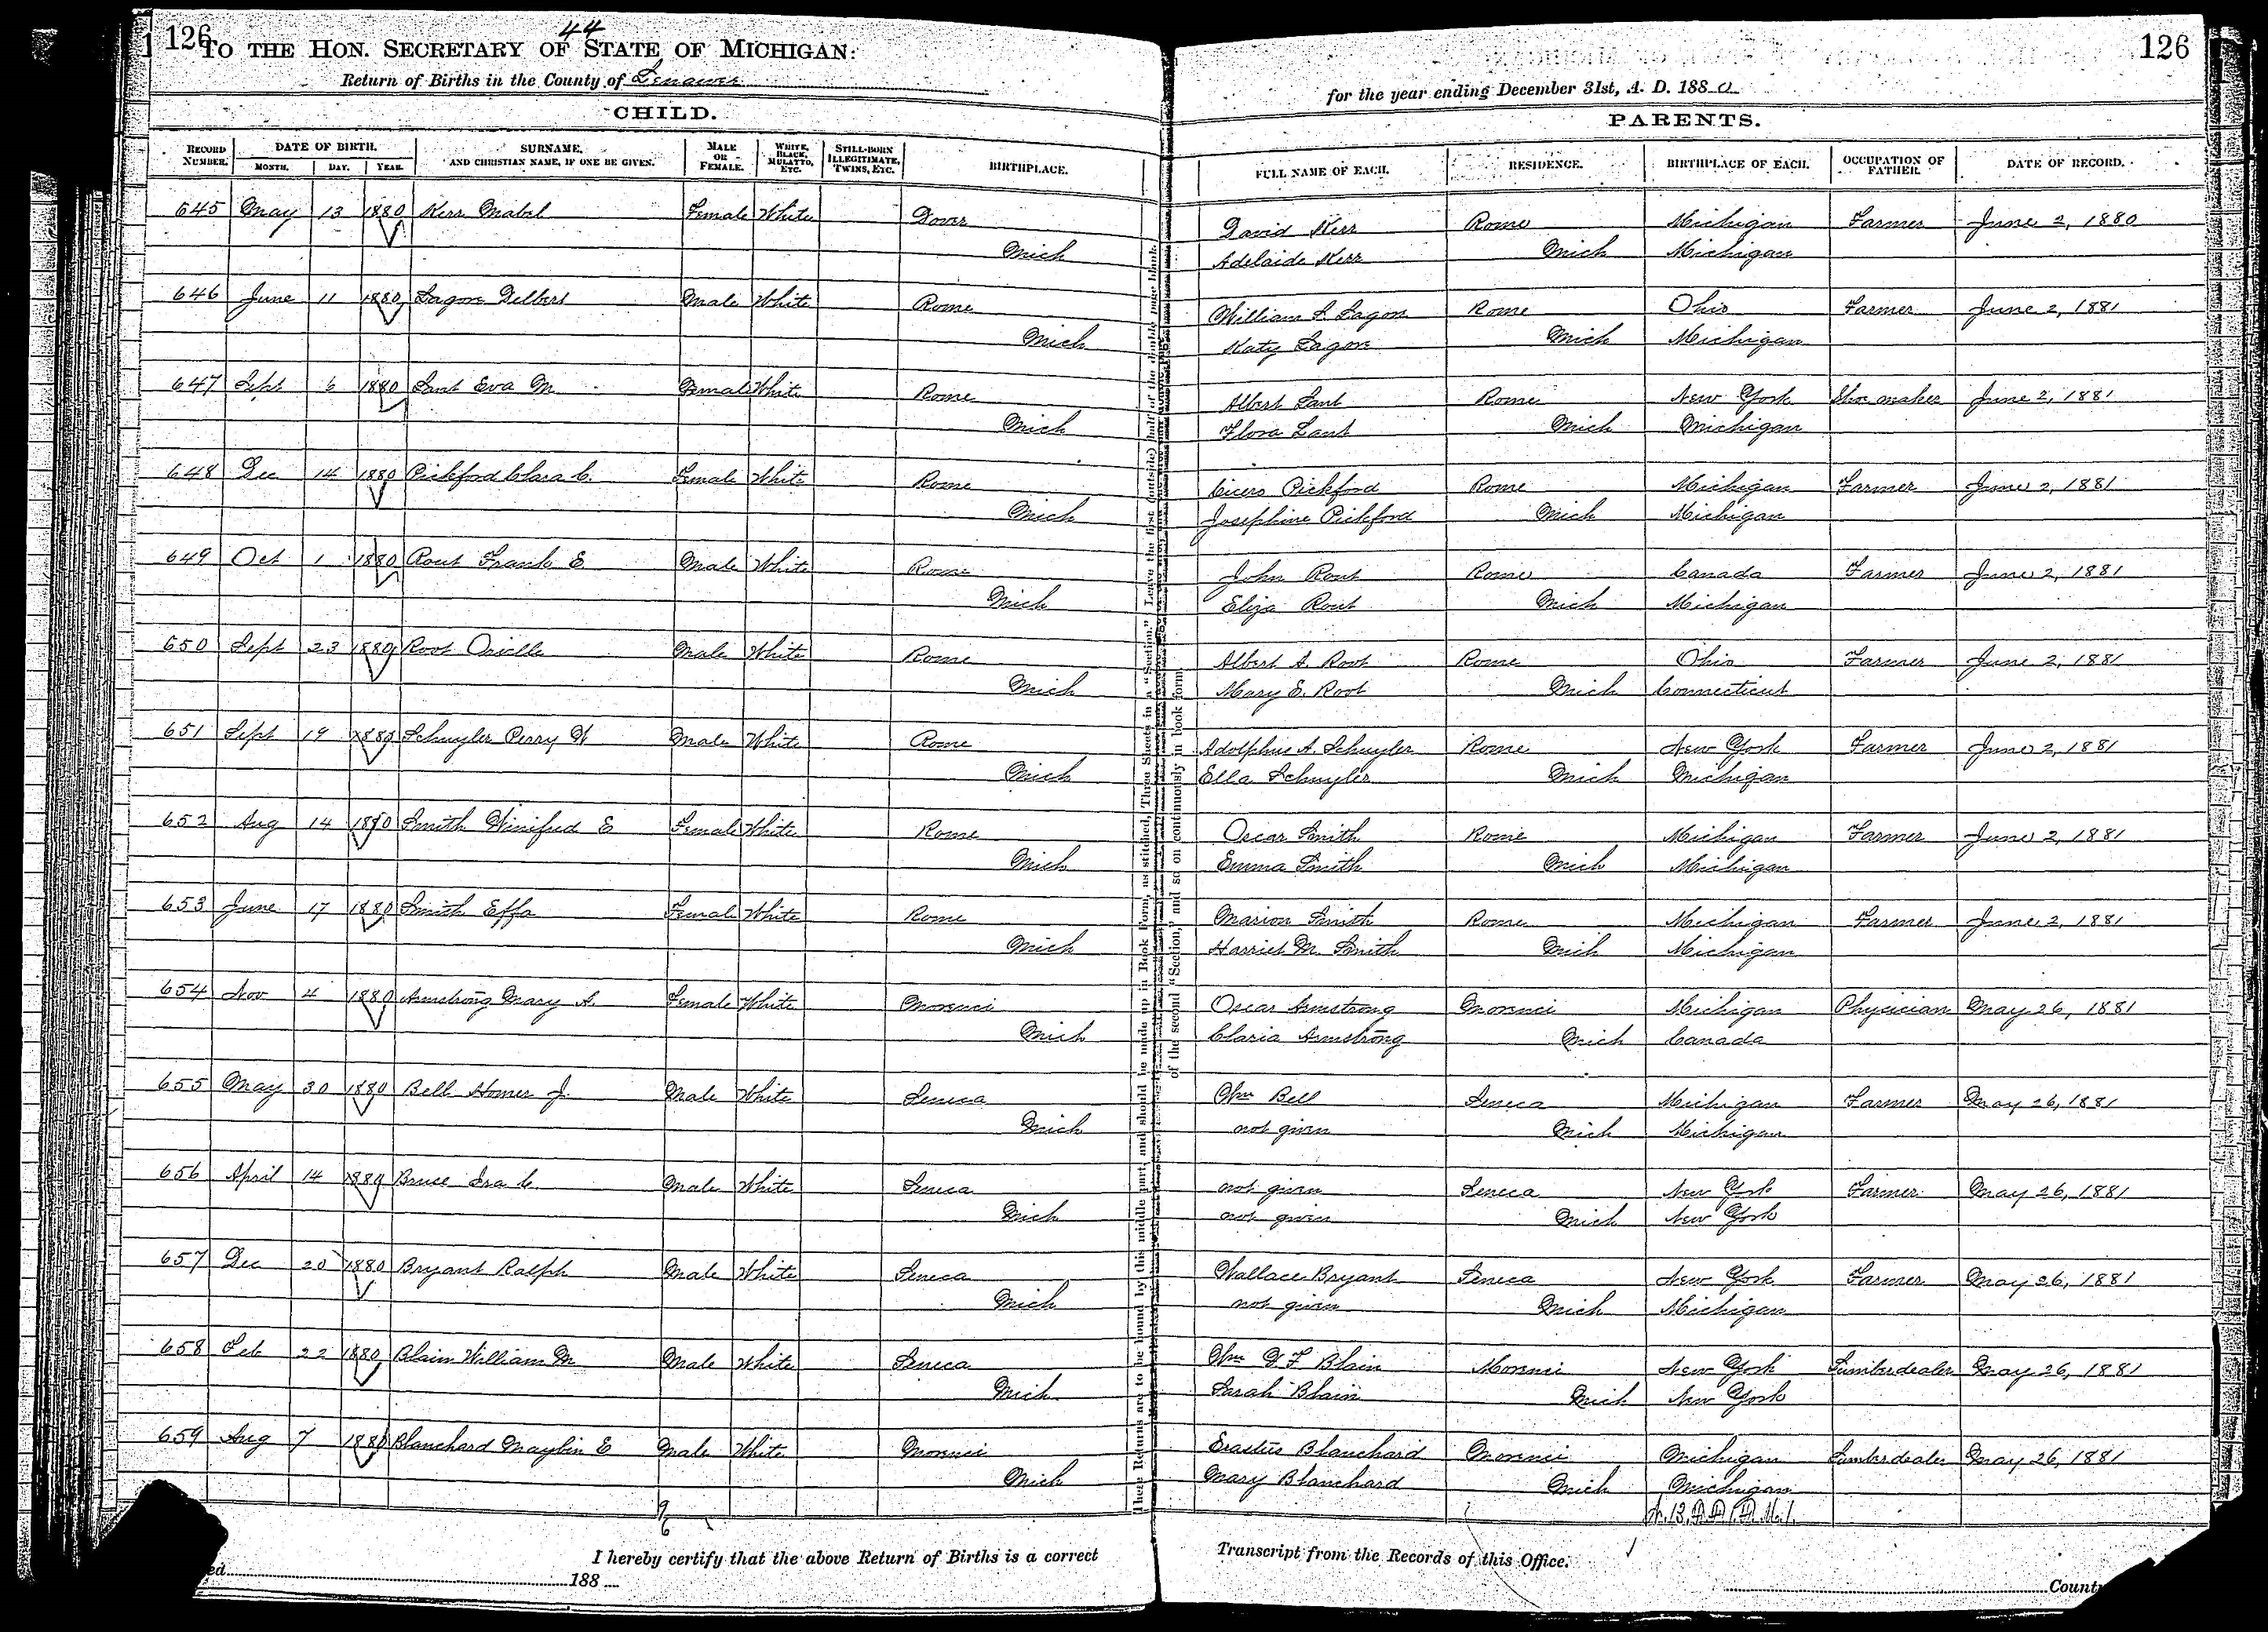 126 44 126
TO THE HON. SECRETARY OF STATE OF MICHIGAN:
Return of Births in the County of Lenawee for the year ending December 31st, A. D. 1880
CHILD. PARENTS.
RECORD NUMBER. DATE OF BIRTH. MONTH. DAY. YEAR. SURNAME, AND CHRISTIAN NAME, IF ONE BE GIVEN. MALE OR FEMALE. WHITE, BLACK, MULATTO, ETC. STILL-BORN ILLEGITIMATE, TWINS, ETC. BIRTHPLACE. FULL NAME OF EACH. RESIDENCE. BIRTHPLACE OF EACH. OCCUPATION OF FATHER. DATE OF RECORD.
645 May 13 1880 Kerr Mabel Female White Dover David Kerr Rome Michigan Farmer June 2, 1880
Mich Adelaide Kerr Mich Michigan
646 June 11 1880 Lagore Delbert Male White Rome William L. Lagore Rome Ohio Farmer June 2, 1881
Mich Katy Lagore Mich Michigan
647 Sept 6 1880 Lant Eva M. Female White Rome Albert Lant Rome New York Shoe maker June 2, 1881
Mich Flora Lant Mich Michigan
648 Dec 14 1880 Pickford Clara C. Female White Rome Cicero Pickford Rome Michigan Farmer June 2, 1881
Mich Josephine Pickford Mich Michigan
649 Oct 1 1880 Rout Frank E Male White Rome John Rout Rome Canada Farmer June 2, 1881
Mich Eliza Rout Mich Michigan
650 Sept 23 1880 Root Orville Male White Rome Albert A. Root Rome Ohio Farmer June 2, 1881
Mich Mary E. Root Mich Connecticut
651 Sept 19 1880 Schuyler Perry W Male White Rome Adolphus A. Schuyler Rome New York Farmer June 2, 1881
Mich Ella Schuyler Mich Michigan
652 Aug 14 1880 Smith Winifred E Female White Rome Oscar Smith Rome Michigan Farmer June 2, 1881
Mich Emma Smith Mich Michigan
653 June 17 1880 Smith Effa Female White Rome Marion Smith Rome Michigan Farmer June 2, 1881
Mich Harriet M. Smith Mich Michigan
654 Nov 4 1880 Armstrong Mary A. Female White Morenci Oscar Armstrong Morenci Michigan Physician May 26, 1881
Mich Claria Armstrong Mich Canada
655 May 30 1880 Bell Homer J. Male White Seneca Wm Bell Seneca Michigan Farmer May 26, 1881
Mich not given Mich Michigan
656 April 14 1880 Bruce Ira C. Male White Seneca not given Seneca New York Farmer May 26, 1881
Mich not given Mich New York
657 Dec 20 1880 Bryant Ralph Male White Seneca Wallace Bryant Seneca New York Farmer May 26, 1881
Mich not given Mich Michigan
658 Feb 22 1880 Blain William M Male White Seneca Wm G. F. Blain Morenci New York Lumberdealer May 26, 1881
Mich Sarah Blain Mich New York
659 Aug 7 1880 Blanchard Maybin E Male White Morenci Erastus Blanchard Morenci Michigan Lumberdealer May 26, 1881
Mich Mary Blanchard Mich Michigan
I hereby certify that the above Return of Births is a correct Transcript from the Records of this Office.
188